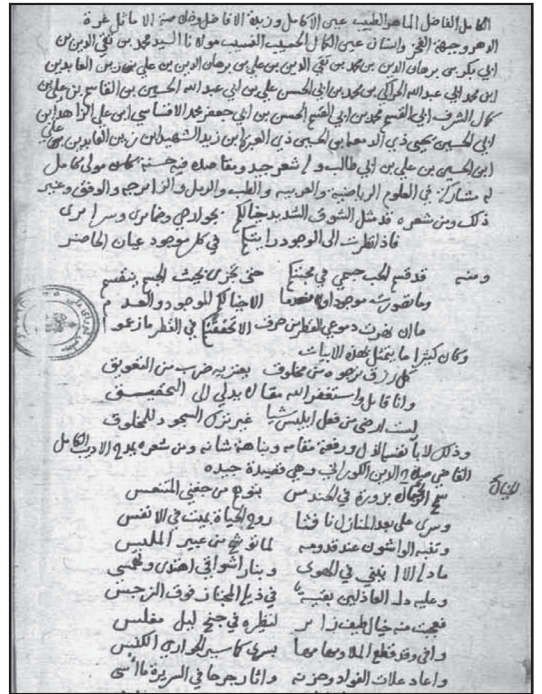 الكامل الفاضل الماهر الطبيب عين الاكامل وزبدة الافاضل وخلاصة الاماثل غرة
الدهر وجبهة الفخر وانسان عين الكمال الحسيب النسيب مولانا السيد محمد بن تقي الدين بن
ابي بكر بن برهان الدين بن محمد بن تقي الدين بن علي بن برهان الدين بن علي بن زين العابدين
ابن محمد ابي عبد الله بن محمد بن ابي الحسن علي بن ابي عبد الله الحسين بن القاسم بن علي بن
كمال الشرف ابي القسم محمد بن ابي الفتح الحسن بن ابي جعفر محمد الاقساسي ابن علي الزاهد ابن
ابي الحسين يحيى ذي الدمعة ابن الحسين ذي العبرة ابن زيد الشهيد ابن زين العابدين علي
ابن الحسين بن علي بن ابي طالب وله شعر جيد ومقاصده فيه حسنة كان مولى كامل
له مشاركة في العلوم الرياضية والعربية والطب والرمل والزايرجه والوفق وغير
ذلك ومن شعره قد مثل الشوق الشديد خيالكم بجوارحي وضمايري وسرايري
فاذا نظرت الى الوجود رايتكم في كل موجود عيان الحاضر
ومنه قد قسم الحب جسمي في محبتكم حتى تجزى بحيث الجسم ينقسم
وما تصورت موجودا ومنعدما الا خيالكم الموجود والعدم
ما ان دموعي القطر من حرق الا تحققتكم في القطر
وكان كثيرا ما يتمثل بهذه الابيات
كل رزق ترجوه من مخلوق يعتريه ضرب من التعويق
وانا قايل واستغفر الله مقال يدلي الى التحقيق
لست ارضى من فعل ابليس شيا غير ترك السجود للمخلوق
وذلك لانفس الاول ورفعة مقامه ونباهة شانه ومن شعره يمدح الاديب الكامل
القاضي الدين الكوراني وهي قصيدة جيدة
سمح الزمان بزورة في الحندس من جفني المتنعس
وسرى على بعد المنازل نافثا روح الحياة بميت في الانفس
وتنبه الواشون عند قدومه لما توشح من عبير الملبس
ماذا الا انني في الهوى وبنار اشواقي اهتدى
وعليه دله العاذلين بقية في ذيل فوق النرجس
فعجبت منه خيال طيف زاير لنظيره في جنح ليل مفلس
وافى وقد قطع الملا يسرى كما سير الجواري الكنس
واعاد علات الفواد وحزنه واثار جرحا في السريرة ما اسى